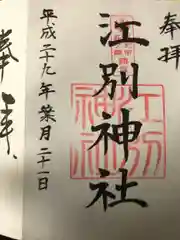 奉拝
江別神社
平成二十九年葉月二十一日
江別
神社
奉拝